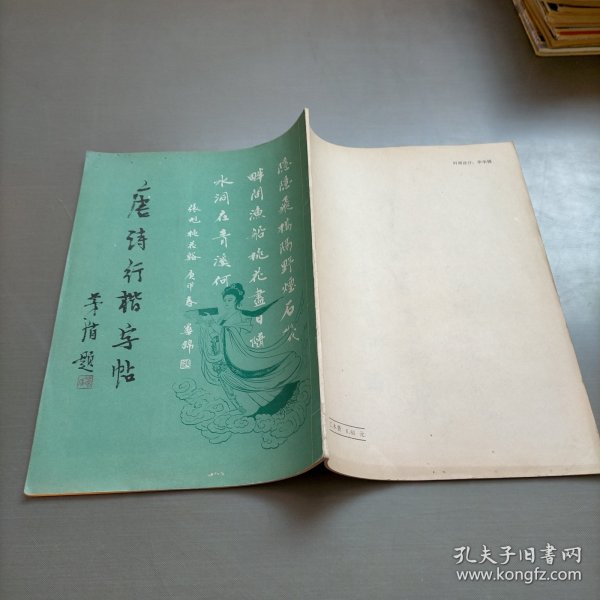 唐诗行楷字帖
茅盾题
隐隐飞桥隔野烟石矶
畔问渔船桃花尽日随
水洞在青溪何
张旭桃花谿 庚申春
封面设计：
孔夫子旧书网
www.kongfz.com